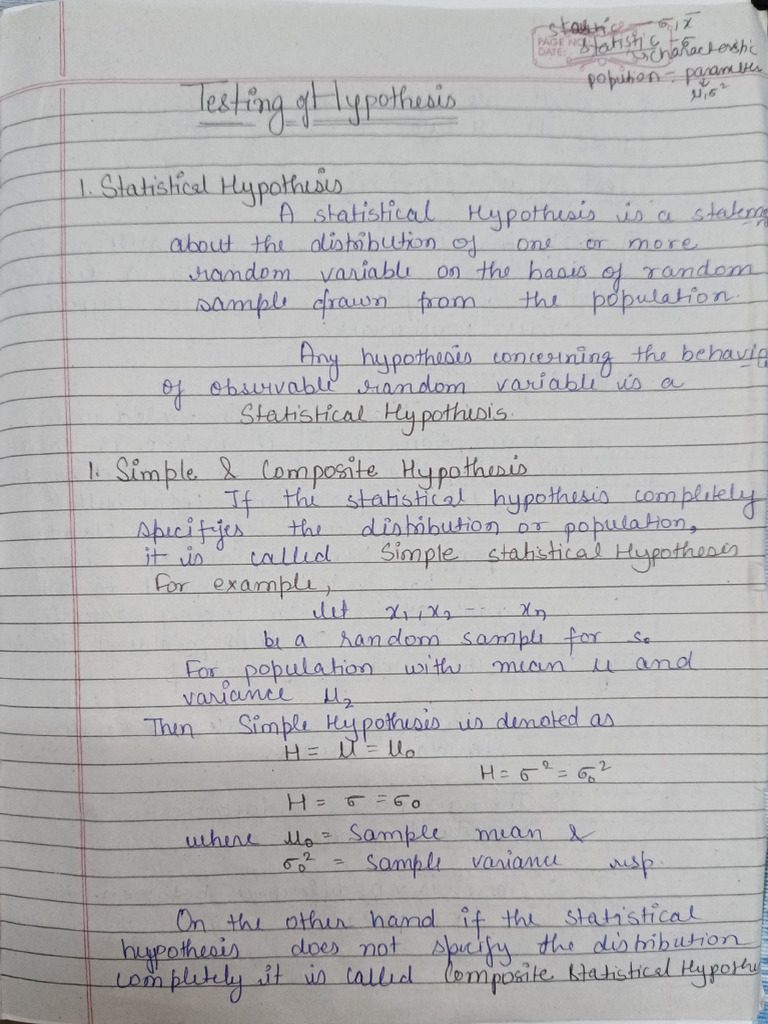 statistic – σ, x̄
PAGE NO
DATE:
statistic
→ characteristic
popltion = parameter
μ, σ²
Testing of Hypothesis
1. Statistical Hypothesis
A statistical Hypothesis is a statem
about the distribution of one or more
random variable on the basis of random
sample drawn from the population.
Any hypothesis concerning the behavio
of observable random variable is a
Statistical Hypothesis.
1. Simple & Composite Hypothesis
If the statistical hypothesis completely
specifyes the distribution or population,
it is called Simple statistical Hypothesis
For example,
let x₁, x₂ --- xn
be a random sample for so
For population with mean μ and
variance μ₂
Then Simple Hypothesis is denoted as
H = μ = μ₀
H = σ² = σ₀²
H = σ = σ₀
where μ₀ = Sample mean &
σ₀² = Sample variance resp.
On the other hand if the statistical
hypothesis does not specify the distribution
completely it is called Composite Statistical Hypothe